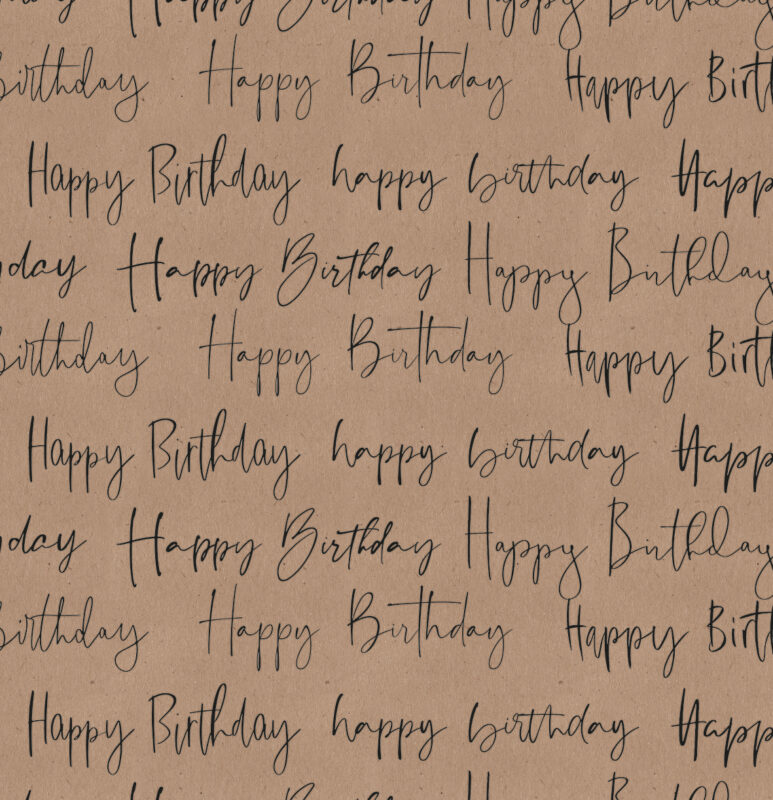 Happy Birthday Happy Birthday
Birthday Happy Birthday Happy Birt
Happy Birthday happy birthday Happ
day Happy Birthday Happy Birthday
Birthday Happy Birthday Happy Birt
Happy Birthday happy birthday Happ
day Happy Birthday Happy Birthday
Birthday Happy Birthday Happy Birt
Happy Birthday happy birthday Happ